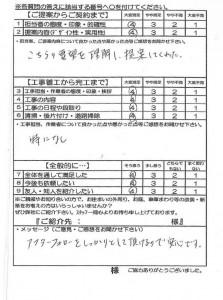 ※各質問の答えに該当する番号へ○を付けてください。
【ご提案からご契約まで】
大変満足 やや満足 やや不満 大変不満
1 担当者の態度・印象・的確性 4 3 2 1
2 提案内容(デザイン性・実用性) 4 3 2 1
こちらの要望を理解し、提案してくれた。
【工事着工から完了まで】
大変満足 やや満足 やや不満 大変不満
3 工事担当・作業者の態度・印象・技術 4 3 2 1
4 工事の内容 4 3 2 1
5 工事の日程や段取り 4 3 2 1
6 清掃・後片付け・道路掃除 4 3 2 1
特になし
【全般的に…】
そう思う
7 全体を通して満足した 4 3 2 1
8 今後も依頼したい 4 3 2 1
9 友人・知人を紹介したい 4 3 2 1
『ご紹介先: 様』
・メッセージ(ご意見・ご感想をお聞かせ下さい)
アフターフォローをしっかりとして頂けるので安心です。
様 ご協力ありがとうございました。